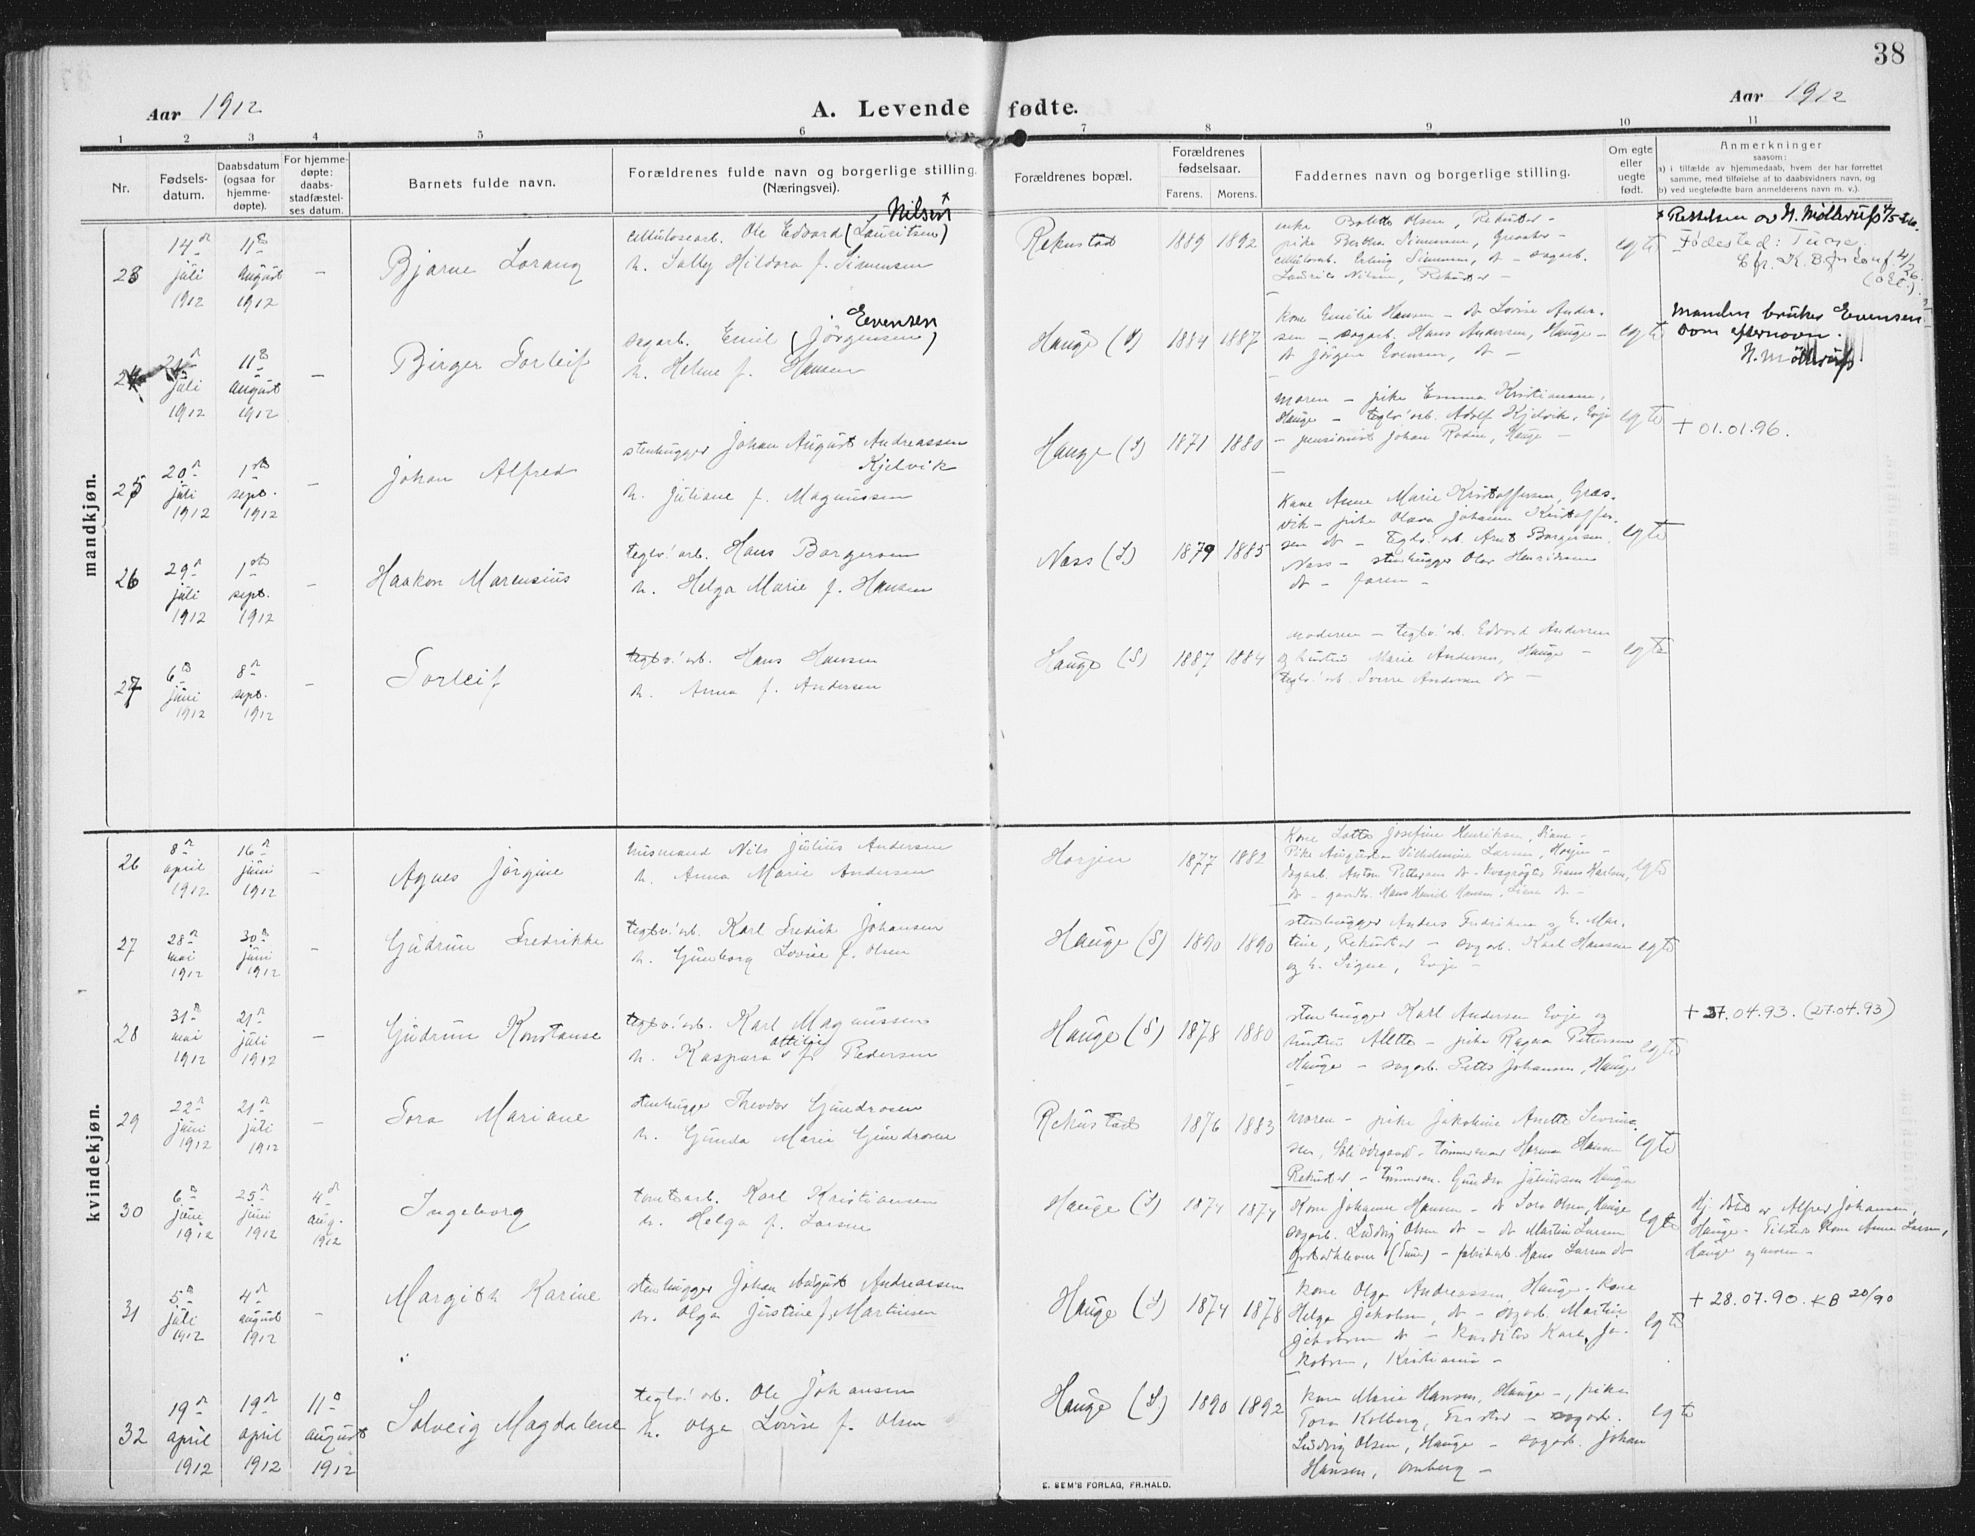 38
Aar 1912
A. Levende fødte.
Aar 1912
1 2 3 4 5 6 7 8 9 10 11
Nr.
Fødsels-
datum.
Daabsdatum
(ogsaa for
hjemme-
døpte).
For hjemme-
døpte:
daabs-
stadfæstel-
ses datum.
Barnets fulde navn.
Forældrenes fulde navn og borgerlige stilling.
(Næringsvei).
Forældrenes bopæl.
Forældrenes
fødselsaar.
Farens. Morens.
Faddernes navn og borgerlige stilling.
Om egte
eller
uegte
født.
Anmerkninger
saasom:
a) i tilfælde av hjemmedaab, hvem der har forrettet
samme, med tilføielse af to daabsvidners navn, og
b) ved uegtefødte barn anmelderens navn m. v.).
mandkjøn.
23
14 juli 1912
11 august 1912
–
Bjarne Lorang
Nilsen
cellulosearb. Ole Edvard (Lauritsen)
h. Sally Hildora f. Simensen
Rekustad
1889 1892
enke Bolette Olsen, Rekustad –
pike Simensen,
Simensen, dt – sagarb.
Laurits Nilsen, Rekustad –
egte
Rettelsen av N. Møllerüfs
Fødested: Tune.
24
juli
1912
11 august 1912
–
Birger Torleif
Evensen
sagarb. Emil (Jörgensen)
h. Helene f. Hansen
Hauge
1884 1887
Kone Emilie Hansen – dt Lovise Ander-
sen – sagarb. Hans Andersen, Hauge –
dt Jörgen Evensen, dt –
egte
Manden bruker Evensen
som efternavn.
N. Møllerüfs
25
20 juli 1912
1 sept. 1912
–
Johan Alfred
stenhugger Johan August Andreassen
Kjelvik
h. Juliane f. Magnussen
Hauge (L)
1871 1880
Moren – pike Emma Kristiansen,
Hauge – teglv.arb. Adolf Kjelvik, Evje
– pensionist Johan Rodin, Hauge –
egte
+ 01.01.96.
26
29 juli 1912
1 sept. 1912
–
Haakon Marensius
teglv.arb. Hans Borgersen
h. Helga Marie f. Hansen
Næss (L)
1879 1885
Kone Anne Marie Kristoffersen, Græs-
vik – pike Olava Johanne Kristoffer-
sen dt – teglv.arb Borgersen,
Næss – stenhugger Olav Henriksen
dt – faren –
egte
27
6 juni 1912
8 sept. 1912
–
Torleif
teglv.arb. Hans Hansen
h. Anna f. Andersen
Hauge (S)
1887 1884
Moderen – teglv.arb. Edvard Andersen
og hustru Marie Andersen, Hauge –
teglv.arb. Sverre Andersen dt –
egte
kvindekjøn.
26
8 april 1912
16 juni 1912
–
Agnes Jörgine
husmand Nils Julius Andersen
h. Anna Marie Andersen
Horjen
1877 1882
Kone Lotte Josefine Henriksen,
Pike Augusta Vilhelmine Larsen, Horjen –
sagarb. Anton Pettersen dt – Frans Karlsen,
dt – Hansen, dt –
egte
27
28 mai 1912
30 juni 1912
–
Gudrun Fredrikke
teglv.arb. Karl Fredrik Johansen
h. Gunborg Lovise f. Olsen
Hauge (S)
1890 1890
stenhugger Anders Fredriksen og h. Mar-
tine, Rekustad – sagarb. Karl Hansen
og h. Signe, Evje –
egte
28
31 mai 1912
21 juli 1912
–
Gudrun Konstanse
teglv.arb. Karl Magnussen
h. Kaspara f. Pedersen
Hauge (S)
1878 1880
stenhugger Karl Andersen Evje og
hustru Alette – pike Ragna Pettersen
Hauge – sagarb. Johansen, Hauge
–
egte
+ 27.04.93. (27.04.93)
29
22 juni 1912
21 juli 1912
–
Tora Mariane
stenhugger Theodor Gundrosen
h. Gunda Marie Gundrosen
Rekustad
1876 1883
Moren – pike Jakobine Anette Severin-
sen, – tömmermand Herman Hansen
Rekustad – tömmerm. Gundro Juliussen Hauge
egte
30
6 juni 1912
25 juni 1912
4 aug. 1912
Ingeborg
tomtearb. Karl Kristiansen
h. Helga f. Larsen
Hauge (L)
1874 1874
Kone Johanne Hansen – dt Tora Olsen, Hauge
sagarb. Ludvig Olsen dt – dt Martin Larsen
(Tune) – fabrikarb. Hans Larsen dt
egte
Hj. døbt av Alfred Johansen,
Hauge – Tilstede Kone Anne Larsen,
Hauge og moren –
31
5 juli 1912
4 august 1912
–
Margith Karine
stenhugger Johan August Andreassen
h. Olga Justine f. Martinsen
Hauge (L)
1874 1878
Kone Olga Andreassen, Hauge – kone
Helga Jakobsen, dt – sagarb. Martin
Jakobsen dt – Konditor Karl Ja-
kobsen, Kristiania –
egte
+ 28.07.90. KB 20/90
32
19 april 1912
19 april 1912
11 august 1912
Solveig Magdalene
teglv.arb. Ole Johansen
h. Olga Lovise f. Olsen
Hauge (L)
1890 1892
Kone Marie Hansen, Hauge –, pike
Tora Kolberg, – sagarb.
Ludvig Olsen, Hauge – sagarb. Johan
Hansen, Omberg –
egte
E. SEM'S FORLAG, FR.HALD.